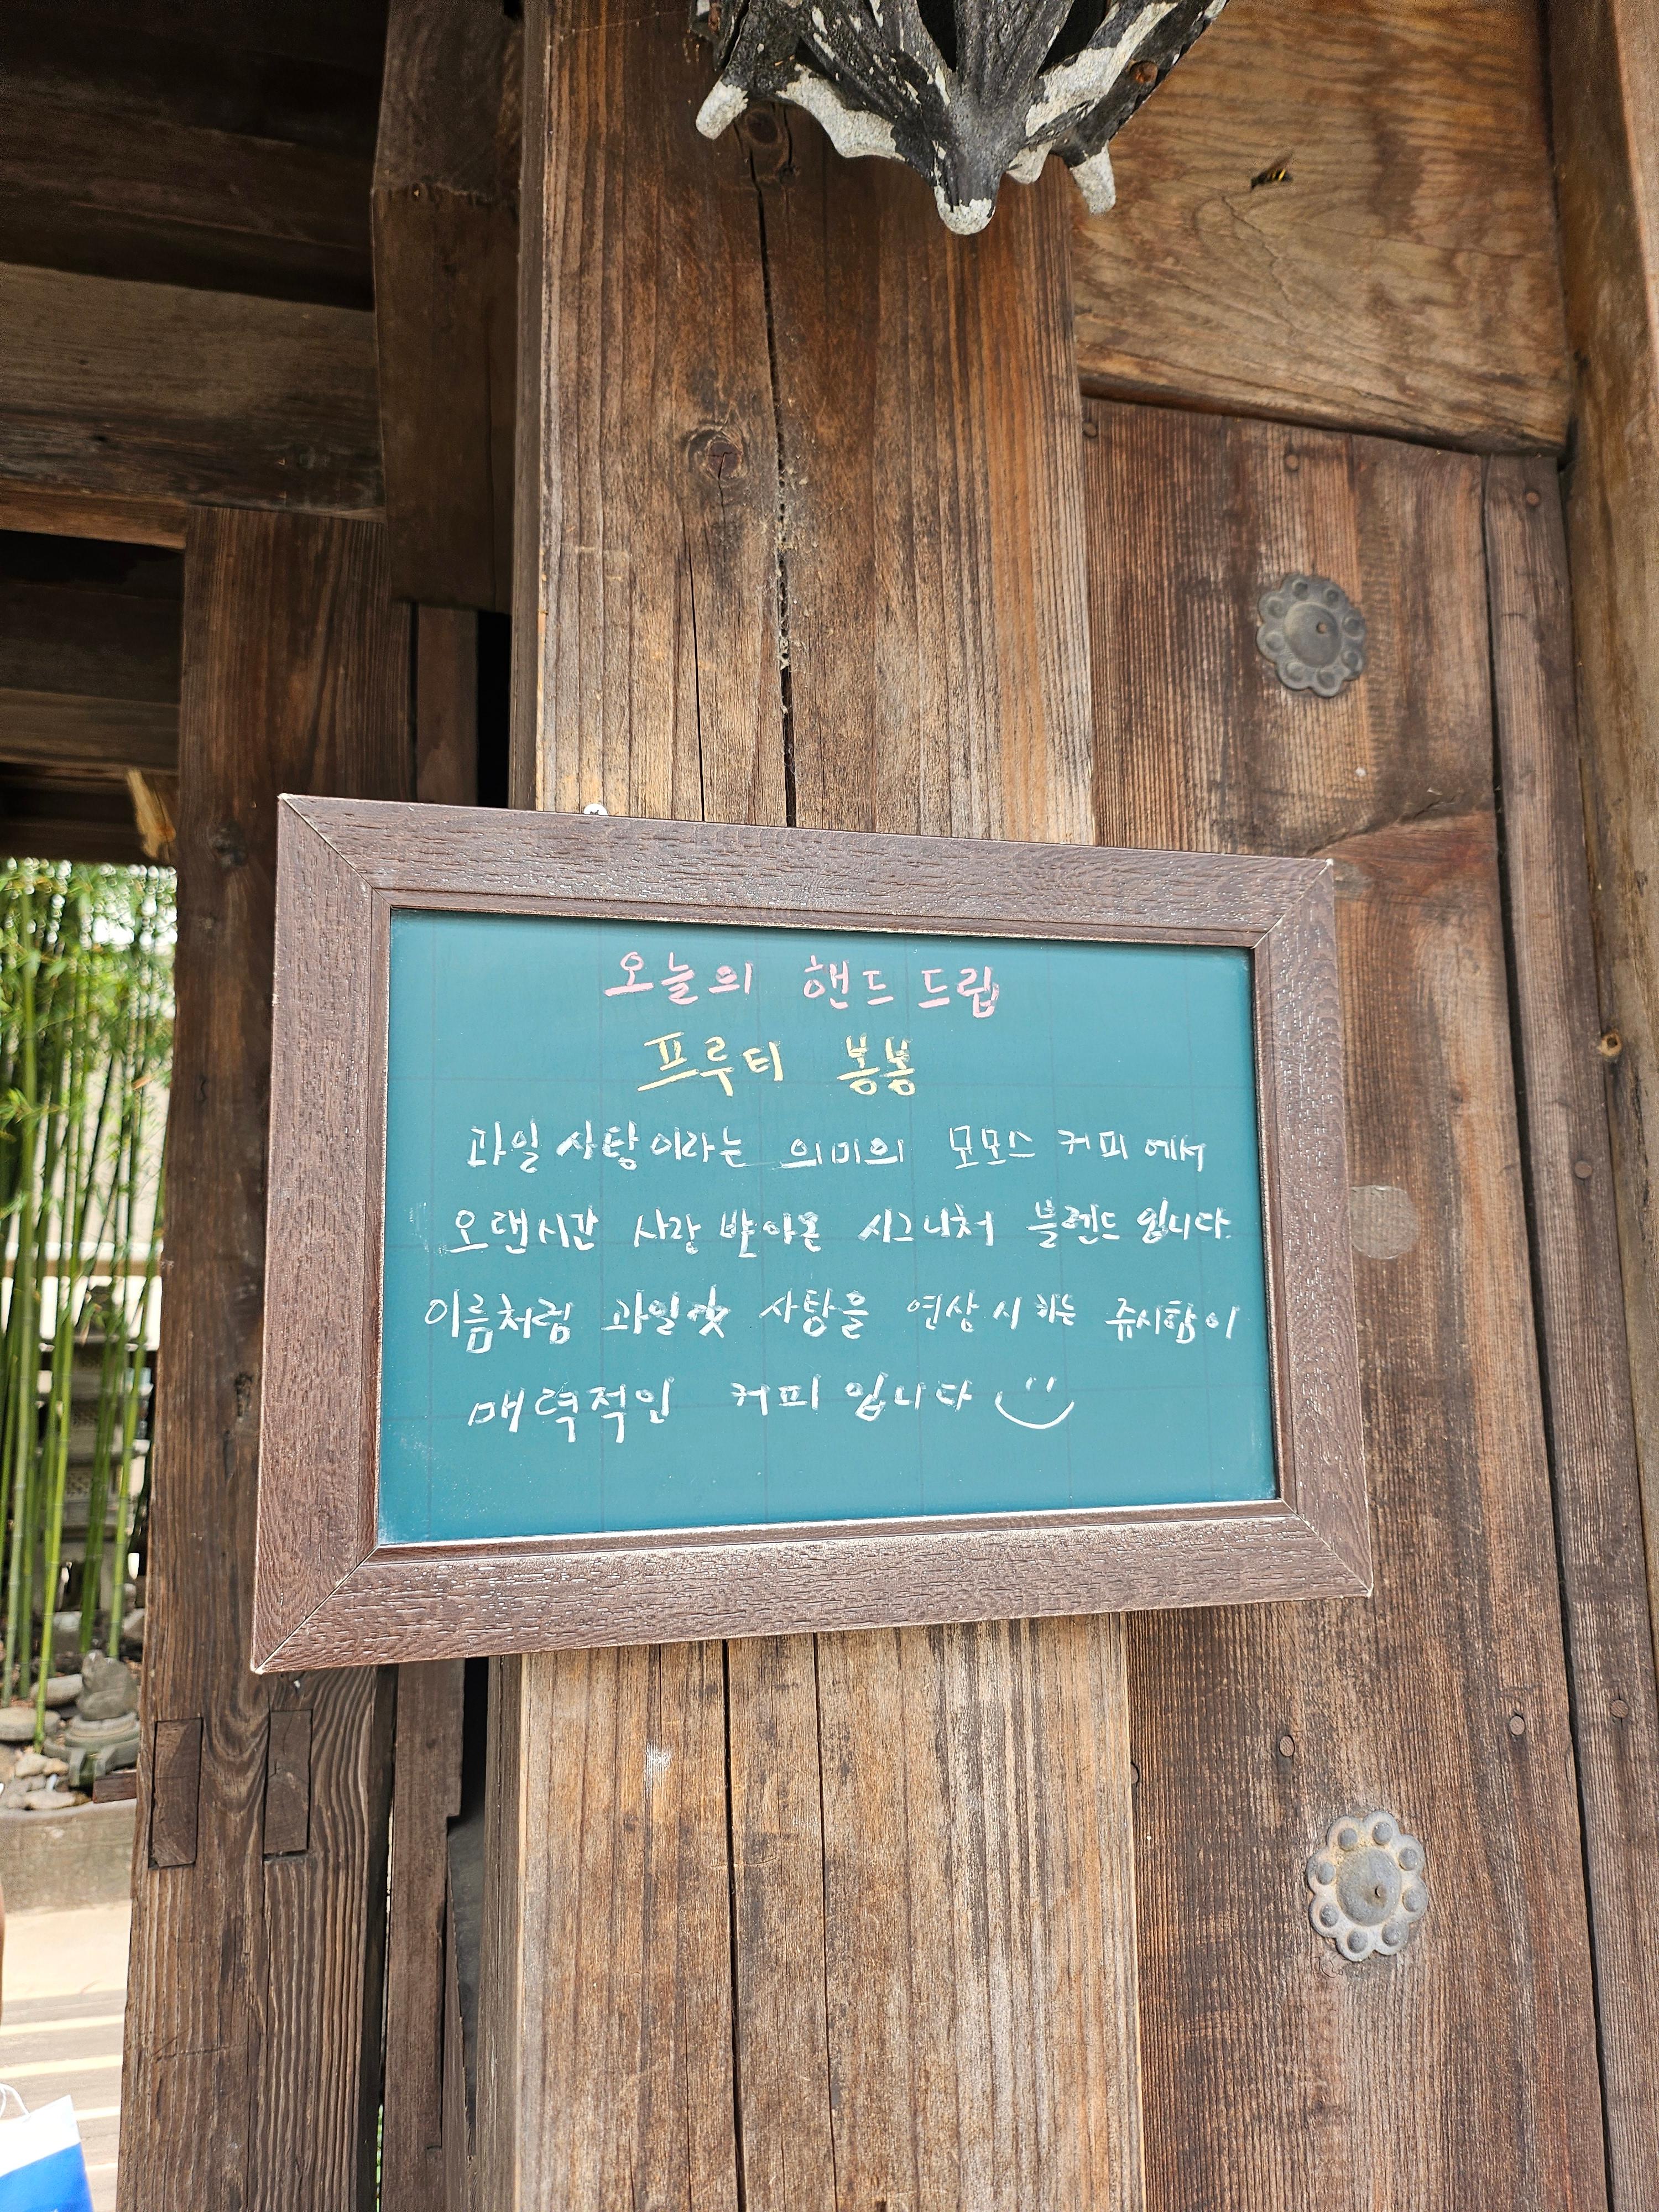 오늘의 핸드 드립
프루티 봉봉
과일 사탕이라는 의미의 모모스 커피에서
오랜시간 사랑 받아온 시그니처 블렌드 입니다.
이름처럼 과일맛 사탕을 연상시 하는 쥬시함이
매력적인 커피 입니다